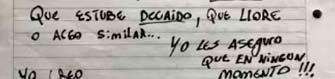 QUE ESTUBE DECAIDO, QUE LLORE
O ALGO SIMILAR... YO LES ASEGURO
QUE EN NINGUN
YO CREO MOMENTO !!!